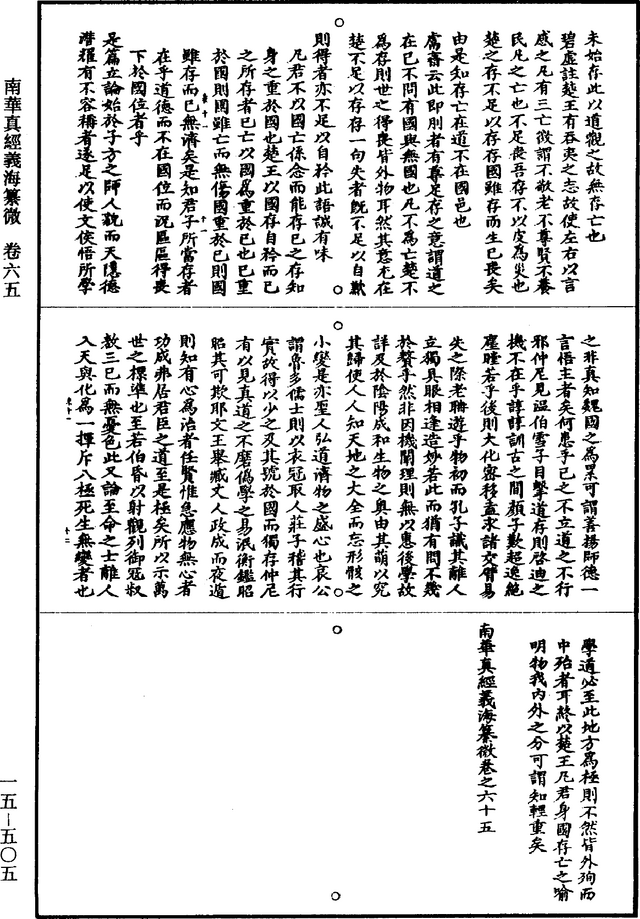 南華真經義海纂微 卷六五
一五–五〇五
未始存此以道觀之故無存亡也
碧虛註楚王有吞夷之志故使左右以言
感之凡有三亡徵謂不敬老不尊賢不養
民凡之亡也不足喪吾存不以皮為災也
楚之存不足以存存國雖存而生已喪矣
由是知存亡在道不在國邑也
鬳齋云此即刖者有尊足存之意謂道之
在已不問有國與無國也凡不為亡楚不
為存則世之得喪皆外物耳然其意尤在
楚不足以存存一句失者既不足以自歉
則得者亦不足以自矜此語誠有味
凡君不以國亡係念而能存已之存知
身之重於國也楚王以國存自矜而已
之所存者已亡以國為重於已也已重
於國則國雖亡而無傷國重於已則國
雖存而已無濟矣是知君子所當存者
在乎道德而不在國位而況區區得喪
下於國位者乎
是篇立論始於子方之師人貌而天隱德
潛耀有不容稱者遂足以使文侯悟所學
之非真知魏國之為累可謂善揚師德一
言悟主者矣何患乎已之不立道之不行
邪仲尼見溫伯雪子目擊道存則啓迪之
機不在乎諄諄訓古之間顏子歎超逸絕
塵瞠若乎後則大化密移盍求諸交臂易
失之際老聃遊乎物初而孔子識其離人
立獨具眼相逢造妙若此而猶有問不幾
於贅乎然非因機闡理則無以惠後學故
詳及於陰陽成和生物之奧由其萌以究
其歸使人人知天地之大全而忘形骸之
小變是亦聖人弘道濟物之盛心也哀公
謂魯多儒士則以衣冠取人莊子稽其行
實故得以少之及其號於國而獨存仲尼
有以見真道之不磨偽學之易泯衡鑑昭
昭其可欺耶文王舉臧丈人政成而夜遁
則知有心為治者任賢惟急應物無心者
功成弗居君臣之道至是極矣所以示萬
世之標準也至若伯昏以射觀列御寇叔
敖三已而無憂色此又論至命之士離人
入天與化為一揮斥八極死生無變者也
學道必至此地方為極則不然皆外殉而
中殆者耳終以楚王凡君身國存亡之喻
明物我內外之分可謂知輕重矣
南華真經義海纂微卷之六十五